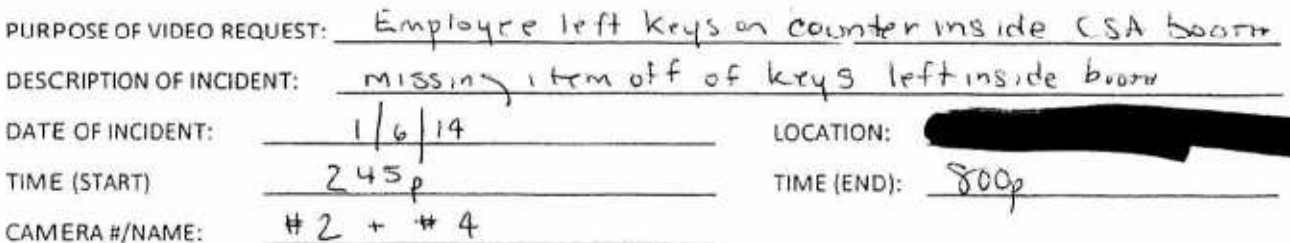 PURPOSE OF VIDEO REQUEST: Employee left keys on counter inside CSA booth
DESCRIPTION OF INCIDENT: missing item off of keys left inside booth
DATE OF INCIDENT: 1/6/14 LOCATION:
TIME (START) 245p TIME (END): 800p
CAMERA #/NAME: #2 + #4